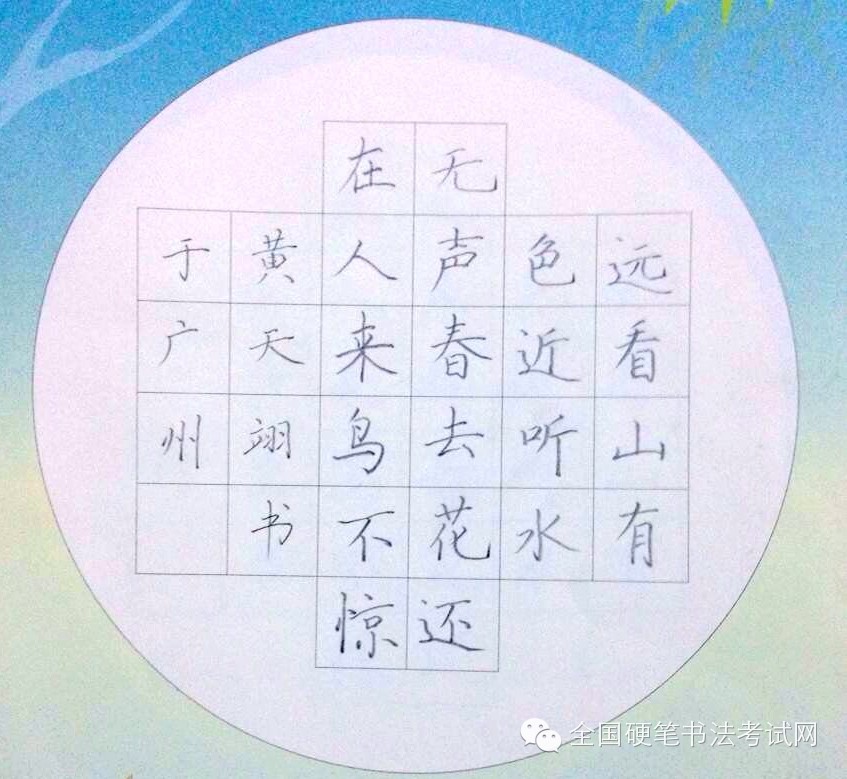 远看山有
色近听水
无声春去花还
在人来鸟不惊
黄天翊书
于广州
全国硬笔书法考试网